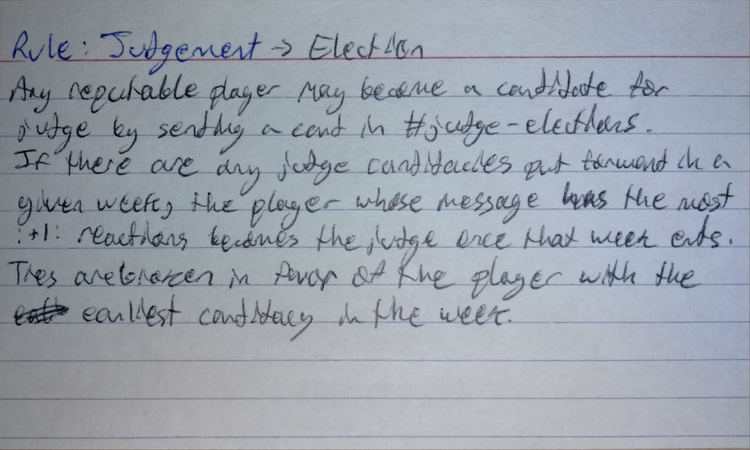 Rule: Judgement → Election
Any reputable player may become a candidate for
judge by sending a card in #judge-elections.
If there are any judge candidacies put forward in a
given week, the player whose message has the most
:+1: reactions becomes the judge once that week ends.
Ties are broken in favor of the player with the
earliest candidacy in the week.